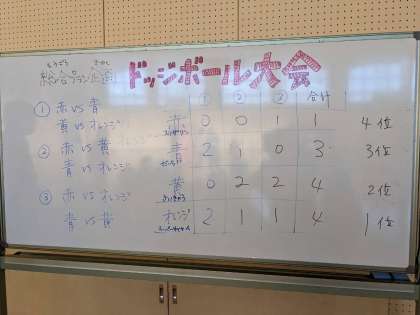 そうごう きかく
総合プラン企画
ドッジボール大会
① ② ③ 合計
① 赤 vs 青
黄 vs オレンジ
② 赤 vs 黄
青 vs オレンジ
③ 赤 vs オレンジ
青 vs 黄
赤 0 0 1 1 4位
青 2 1 0 3 3位
黄 0 2 2 4 2位
オレンジ 2 1 1 4 1位